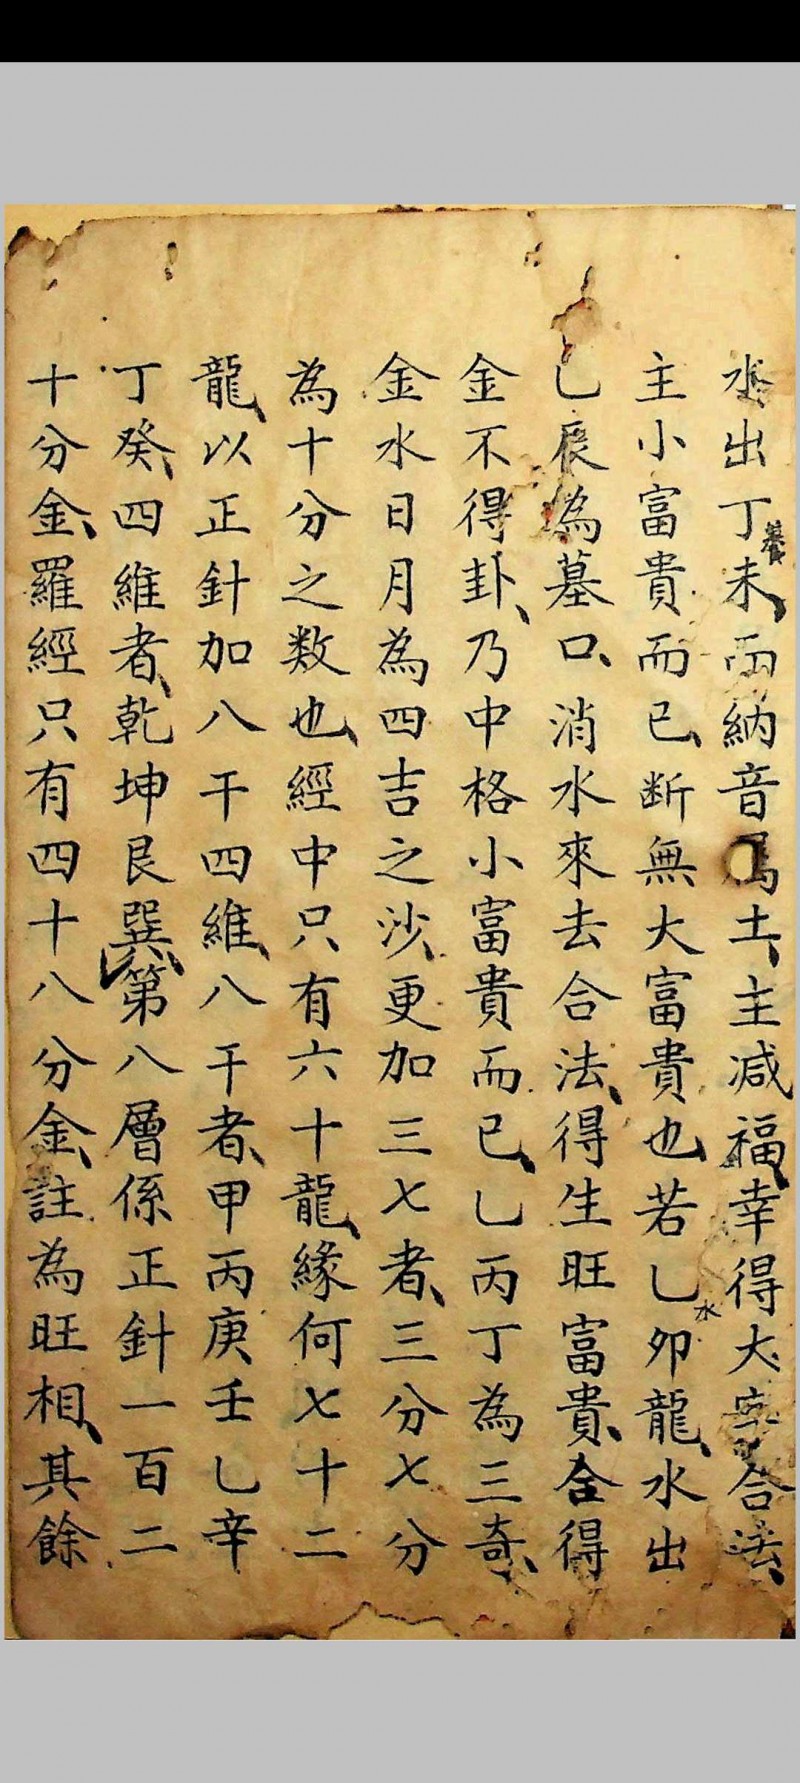 水出丁未、而納音属土、主減福、幸得大字合法、
養
主小富貴而已、断無大富貴也若乙卯龍、水出
水
乙辰為墓口、消水來去合法、得生旺富貴、全得
金不得卦、乃中格小富貴而已、乙丙丁為三奇、
金水日月為四吉之沙、更加三七者、三分七分
為十分之数也、經中只有六十龍、緣何七十二
龍、以正針加八干四維、八干者、甲丙庚壬乙辛
丁癸、四維者、乾坤艮巽、第八層係正針一百二
十分金、羅經只有四十八分金、註為旺相、其餘